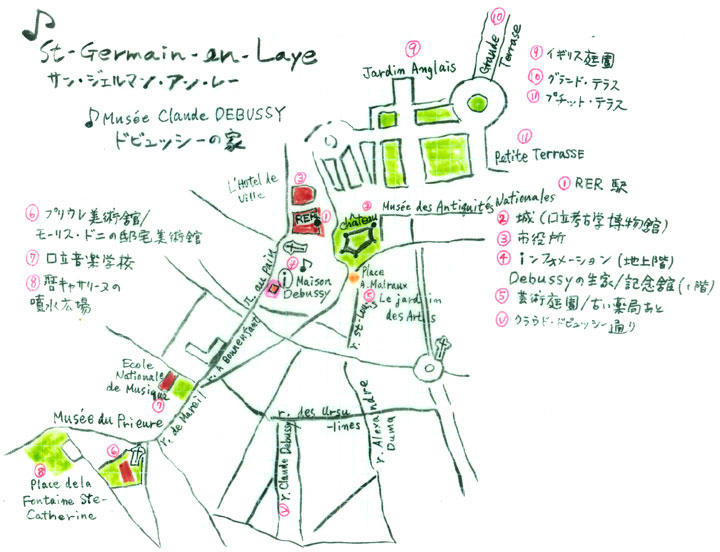 St-Germain-en-Laye
サン・ジェルマン・アン・レー
Musée Claude DEBUSSY
ドビュッシーの家
⑨
Jardin Anglais
⑩
Grande
Terrasse
⑪
Petite Terrasse
⑨ イギリス庭園
⑩ グランド・テラス
⑪ プチット・テラス
L'Hotel de
Ville
③
RER
①
②
Château
Musée des Antiquités Nationales
① RER 駅
② 城(口立考古学博物館)
③ 市役所
④ インフォメーション(地上階)
Debussyの生家/記念館(1階)
⑤ 芸術庭園/古い薬局あと
クラウド・ドビュッシー通り
⑥ プリウレ美術館/
モーリス・ドニの邸宅美術館
⑦ 口立音楽学校
⑧ 暦キャサリースの
噴水広場
r. au Pain
i
Maison
Debussy
Place
A. Malraux
⑤ Le jardin
des Arts
r. St-Louis
r. A Bonnenfant
Ecole
Nationale
de Musique
⑦
r. de Mareil
Musée du Prieure
⑥
⑧
Place de la
Fontaine Ste-
Catherine
r. des Ursu
-lines
r. Claude Debussy
r. Alexandre
Duma